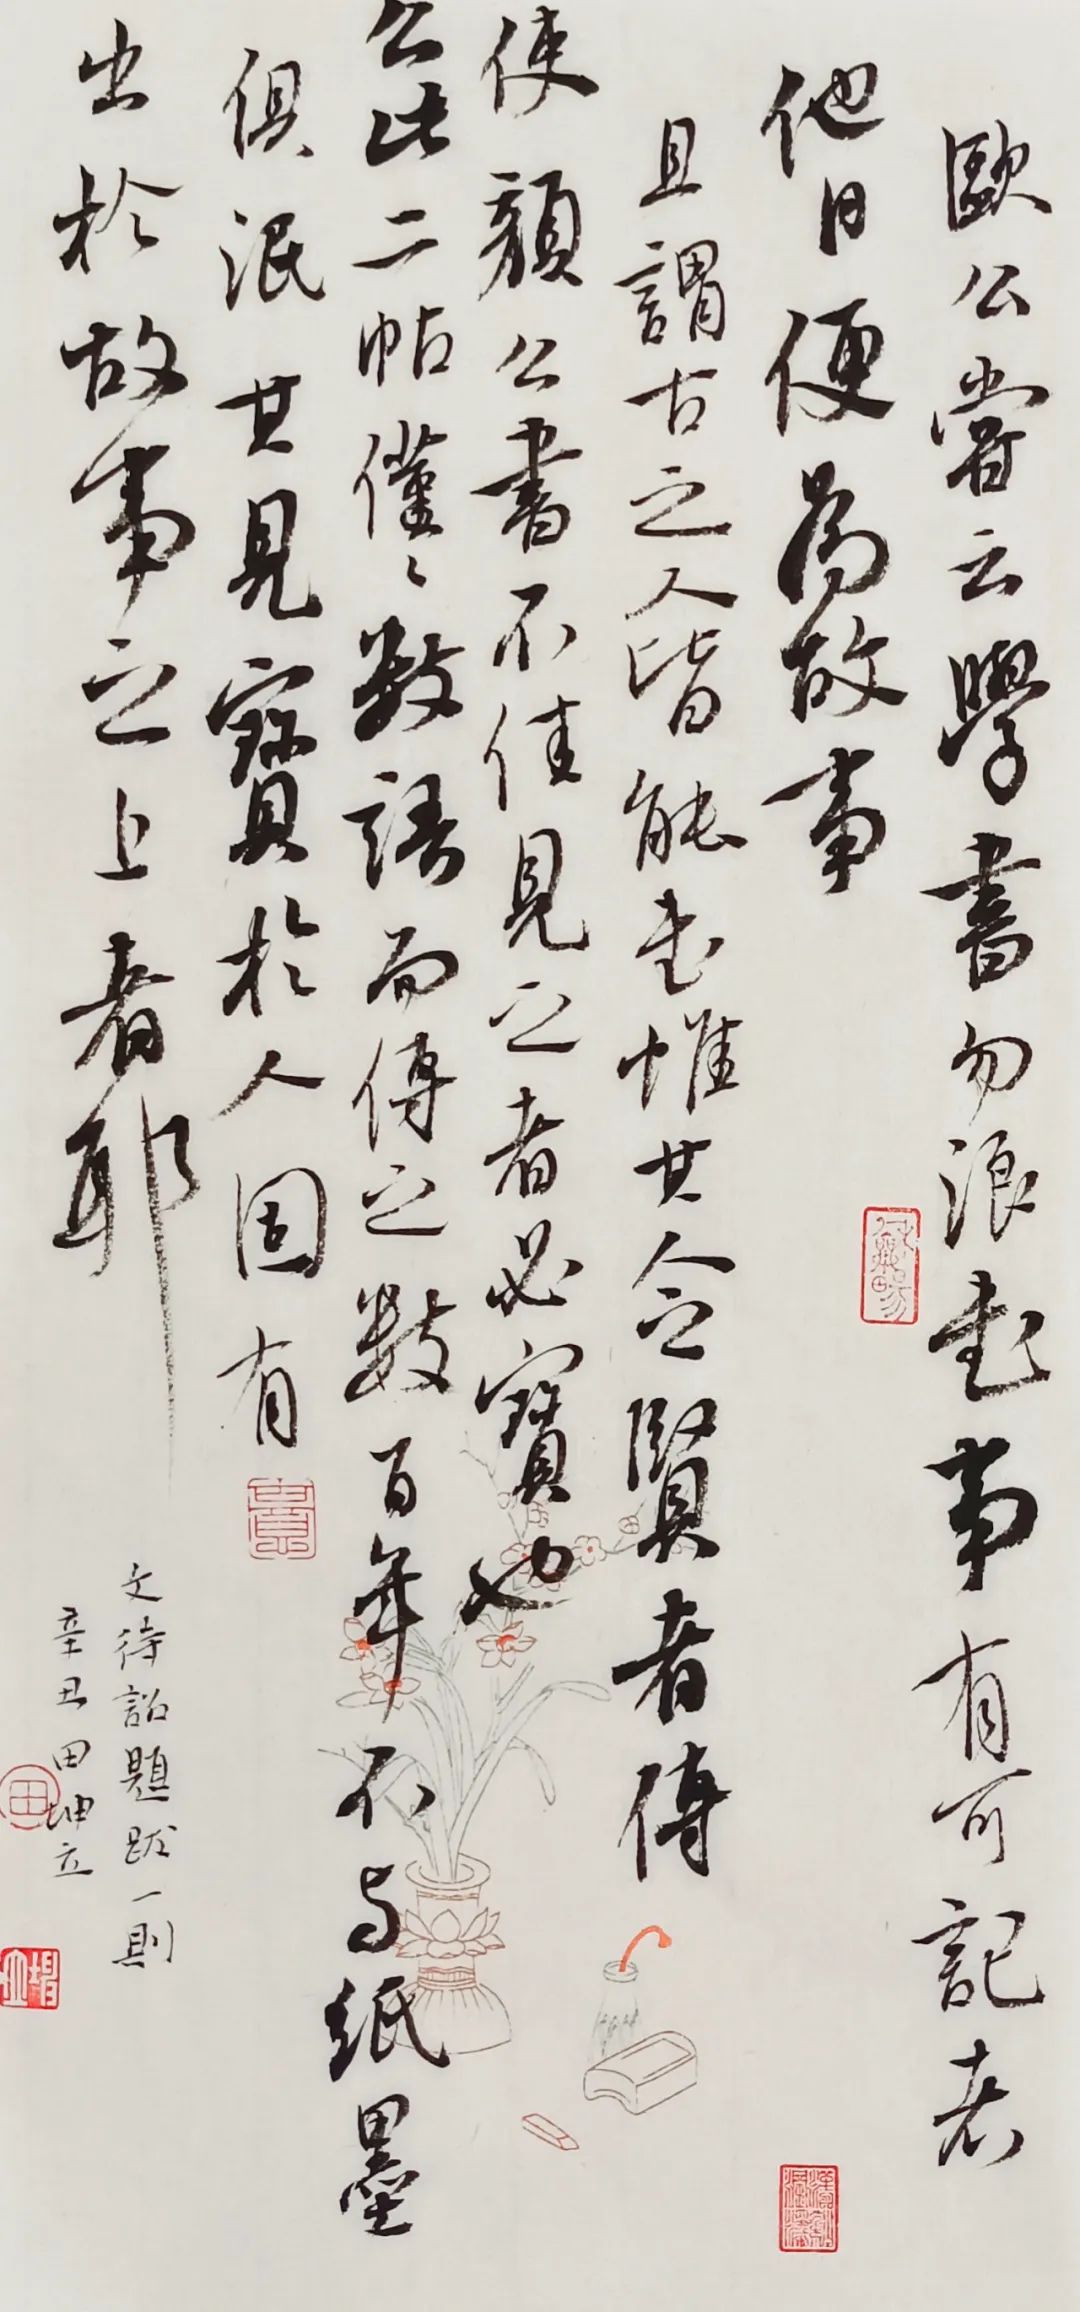 歐公嘗云學書勿浪書事有可記者
他日便為故事
且謂古之人皆能書惟其人之賢者傳
使顏公書不佳見之者必寶也
公此二帖僅僅數語而傳之數百年不与紙墨
俱泯其見寶於人固有
出於故事之上者耶
文待詔題跋一則
辛丑田坤立
田